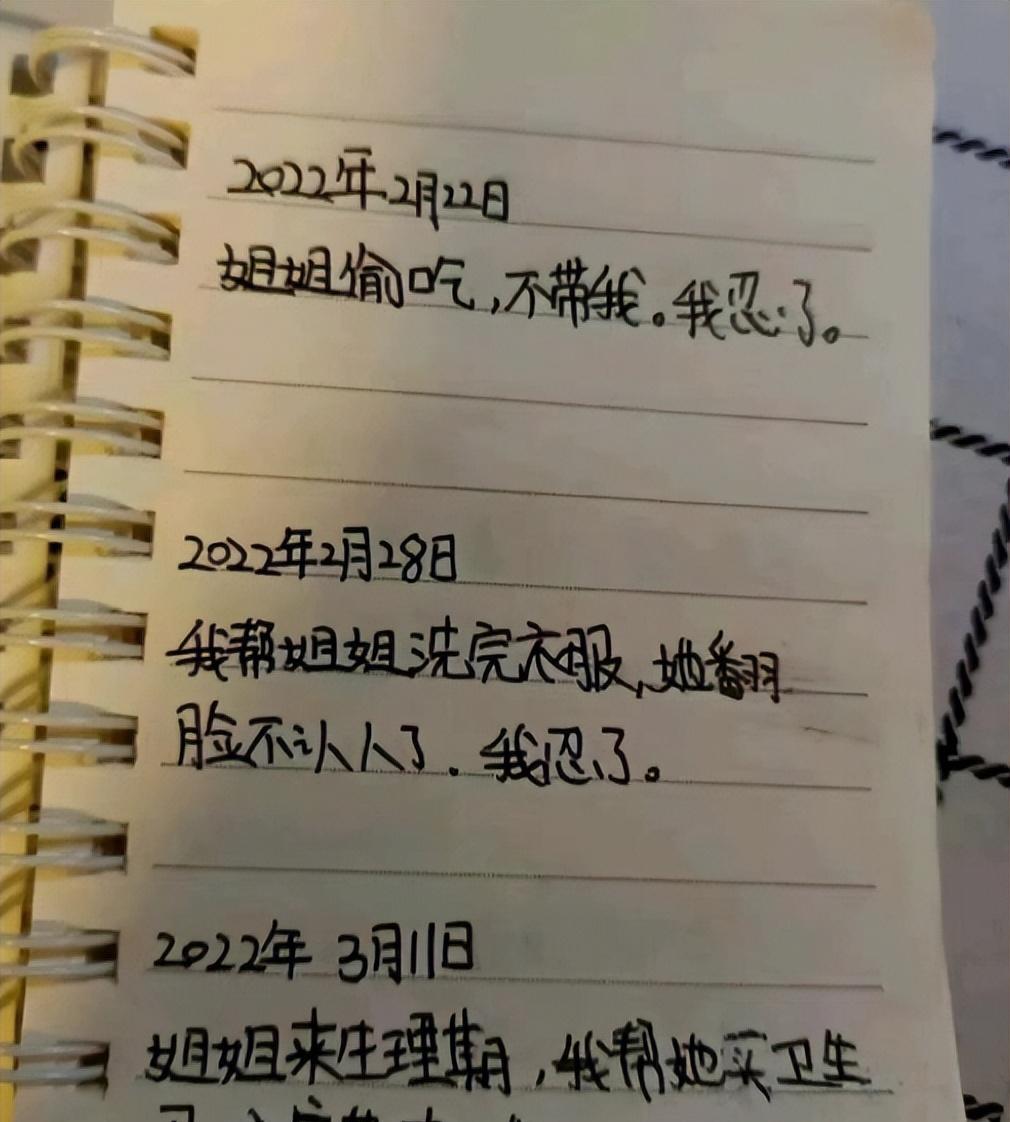 2022年2月22日
姐姐偷吃,不带我。我忍了。
2022年2月28日
我帮姐姐洗完衣服,她翻
脸不认人了.我忍了。
2022年 3月11日
姐姐来生理期,我帮她买卫生